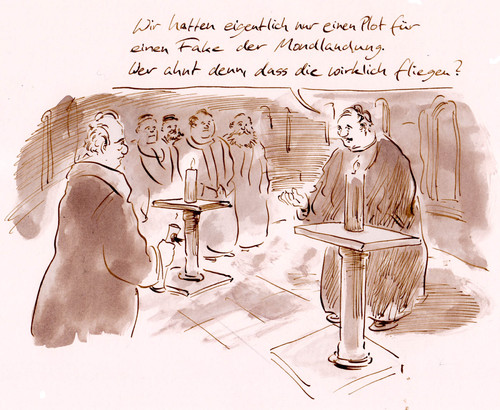 Wir hatten eigentlich nur einen Plot für
einen Fake der Mondlandung.
Wer ahnt denn, dass die wirklich fliegen?